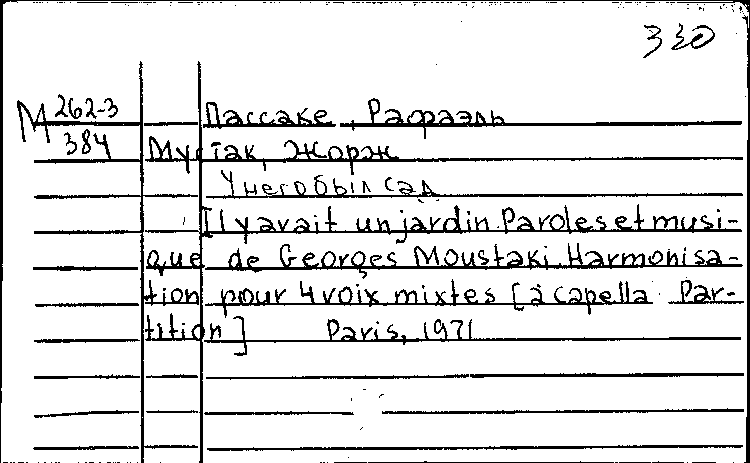 330
М 262-3
384
Пассаке, Рафаэль
Мустак, Жорж
У него был сад
Il y avait un jardin. Paroles et musi-
que de Georges Moustaki. Harmonisa-
tion pour 4 voix mixtes [à capella. Par-
tition] Paris, 1971